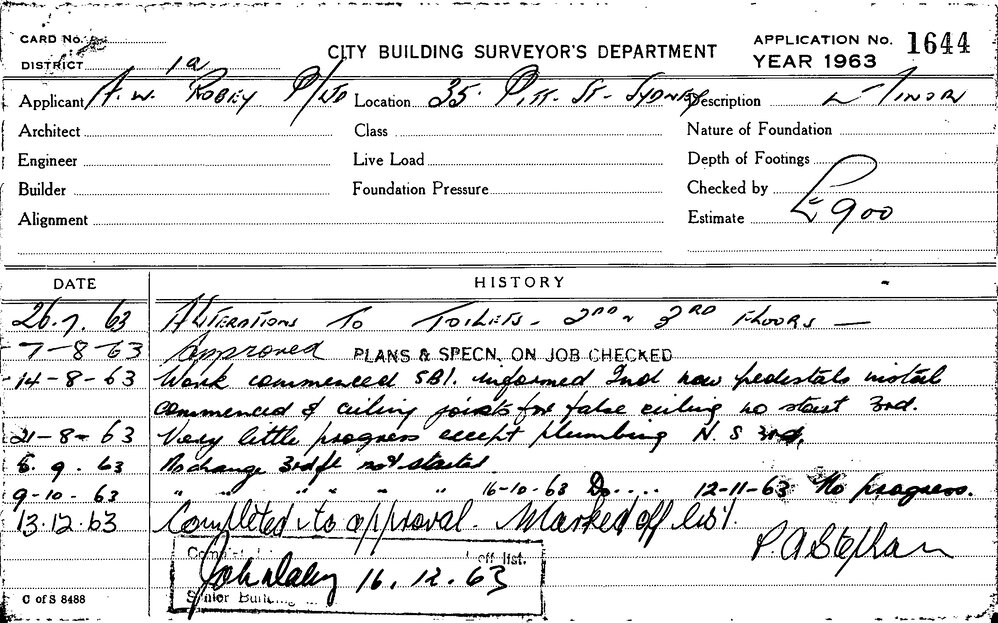 CARD No.
CITY BUILDING SURVEYOR'S DEPARTMENT
APPLICATION No. 1644
DISTRICT 1a
YEAR 1963
Applicant A. W. ROBEY P/LTD Location 35. PITT. ST. SYDNEY Description MINOR
Architect Class Nature of Foundation
Engineer Live Load Depth of Footings
Builder Foundation Pressure Checked by
Alignment Estimate £900
DATE HISTORY
26.7.63 ALTERATIONS TO TOILETS - 2ND & 3RD FLOORS —
7-8-63 Approved PLANS & SPECN. ON JOB CHECKED
14-8-63 Work commenced SBI. informed 2nd new pedestals install
commenced & ceiling joists for false ceiling no start 3rd.
21-8-63 Very little progress except plumbing N. S 3rd.
5. 9. 63 No change 3rd fl not started.
9-10-63 " " " " " " 16-10-63 Do.... 12-11-63 No progress.
13.12.63 Completed to approval. Marked off list.
P. A Stephan
off list.
John Daley 16. 12. 63
Senior Building
C of S 8488